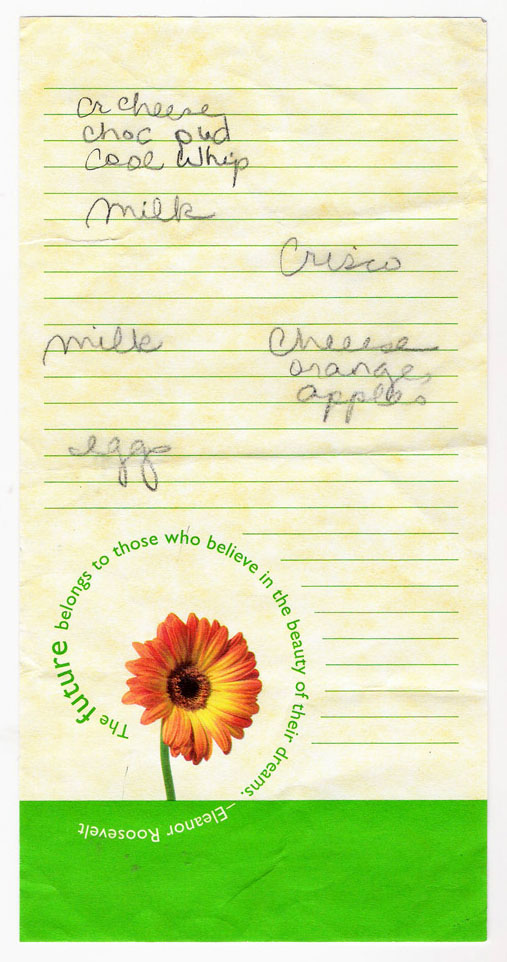 cr cheese
choc pud
cool whip
milk
Crisco
milk
cheese
oranges
apples
eggs
The future belongs to those who believe in the beauty of their dreams.
–Eleanor Roosevelt